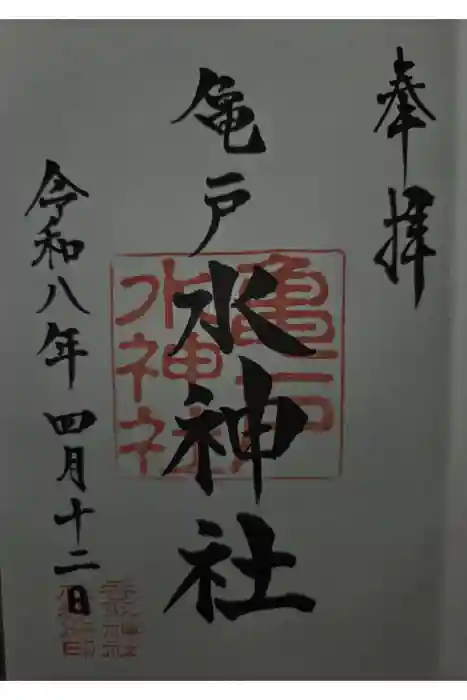 奉拝
亀戸水神社
亀戸
水神社
令和八年四月十二日